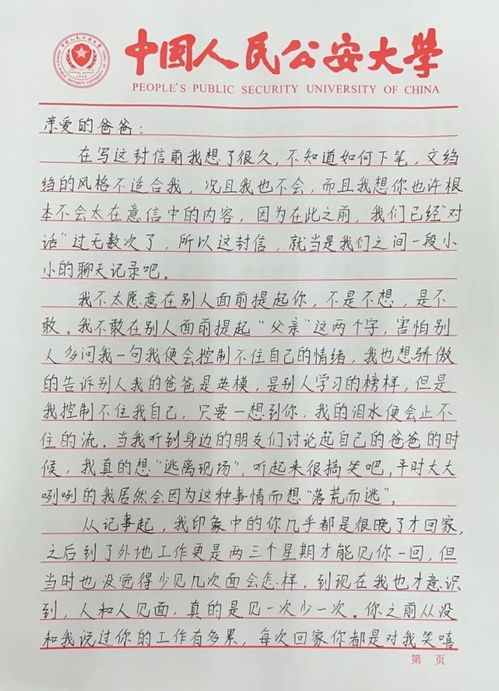 中国人民公安大学
PEOPLE'S PUBLIC SECURITY UNIVERSITY OF CHINA
亲爱的爸爸：
在写这封信前我想了很久，不知道如何下笔，文绉
绉的风格不适合我，况且我也不会，而且我想你也许根
本不会太在意信中的内容，因为在此之前，我们已经“对
话”过无数次了，所以这封信，就当是我们之间一段小
小的聊天记录吧。
我不太愿意在别人面前提起你，不是不想，是不
敢。我不敢在别人面前提起“父亲”这两个字，害怕别
人多问我一句我便会控制不住自己的情绪，我也想骄傲
的告诉别人我的爸爸是英模，是别人学习的榜样，但是
我控制不住我自己，只要一想到你，我的泪水便会止不
住的流。当我听到身边的朋友们讨论起自己的爸爸的时
候，我真的想“逃离现场”，听起来很搞笑吧，平时大大
咧咧的我居然会因为这种事情而想“落荒而逃”。
从记事起，我印象中的你几乎都是很晚了才回家，
之后到了外地工作更是两三个星期才能见你一回，但
当时也没觉得少见几次面会怎样，到现在我也才意识
到，人和人见面，真的是见一次少一次。你之前从没
和我说过你的工作有多累，每次回家你都是对我笑嘻
第 页